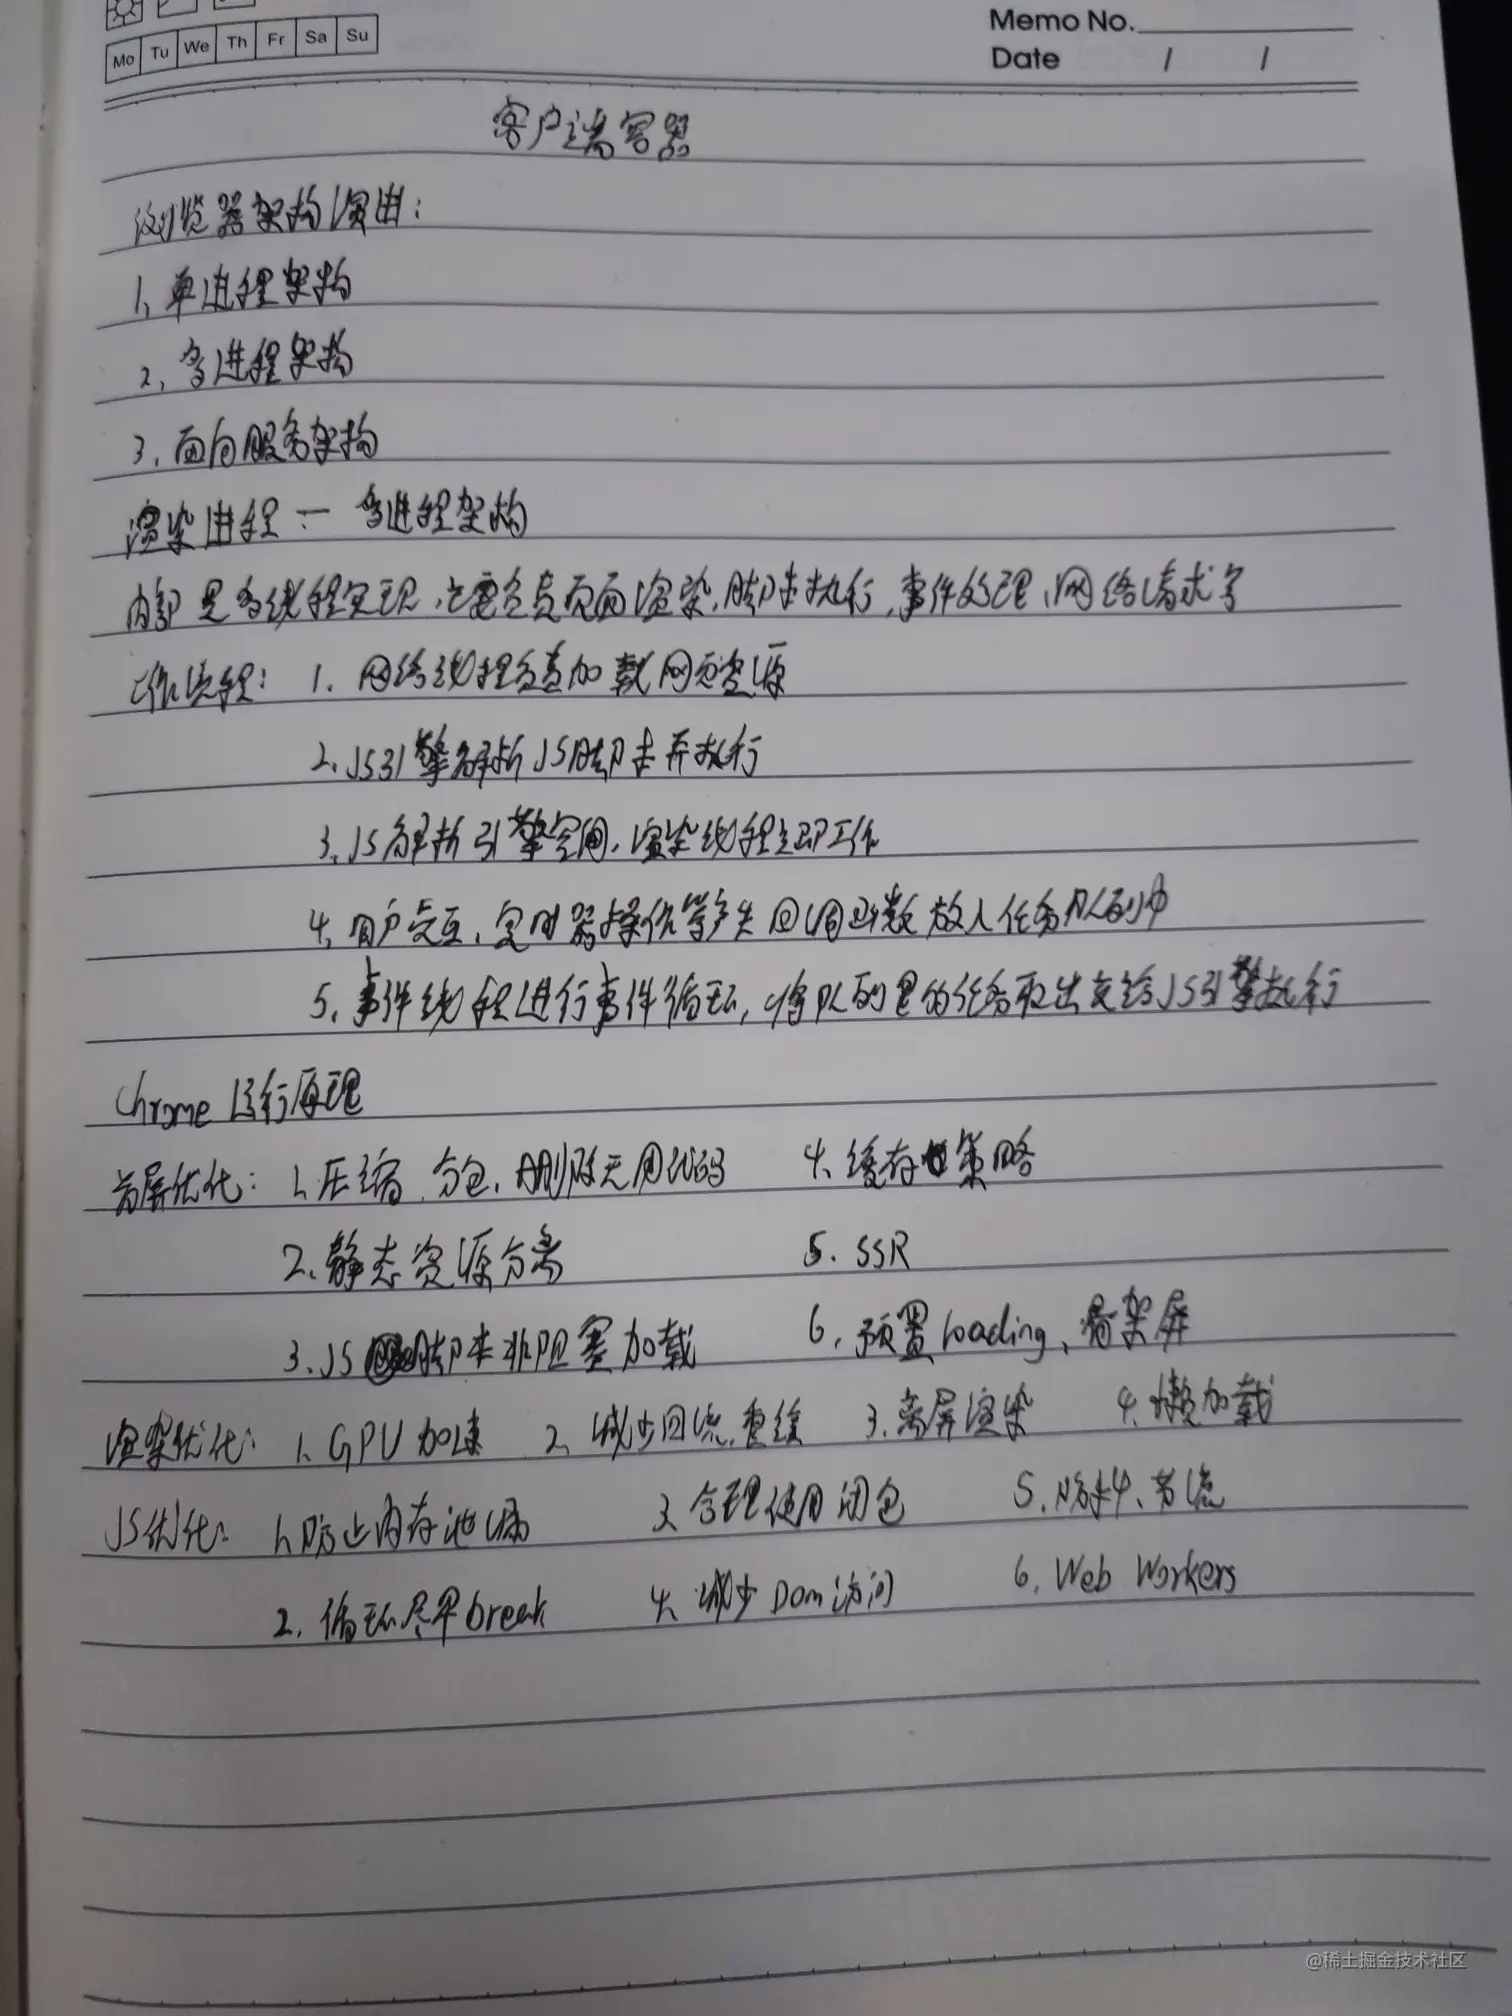 Mo Tu We Th Fr Sa Su
Memo No.
Date / /
客户端容器
浏览器架构演进:
1、单进程架构
2、多进程架构
3、面向服务架构
渲染进程 — 多进程架构
内部是多线程实现,主要负责页面渲染,脚本执行,事件处理,网络请求等
工作流程: 1、网络线程负责加载网页资源
2、JS引擎解析JS脚本并执行
3、JS解析引擎空闲,渲染线程立即工作
4、用户交互、定时器操作等产生回调函数放入任务队列中
5、事件线程进行事件循环,将队列里的任务取出交给JS引擎执行
Chrome运行原理
首屏优化: 1、压缩、分包、删除无用代码 4、缓存策略
2、静态资源分离 5、SSR
3、JS脚本非阻塞加载 6、预置loading、骨架屏
渲染优化: 1、GPU加速 2、减少回流、重绘 3、离屏渲染 4、懒加载
JS优化: 1、防止内存泄漏 3、合理使用闭包 5、防抖、节流
2、循环尽早break 4、减少Dom访问 6、Web Workers
@稀土掘金技术社区